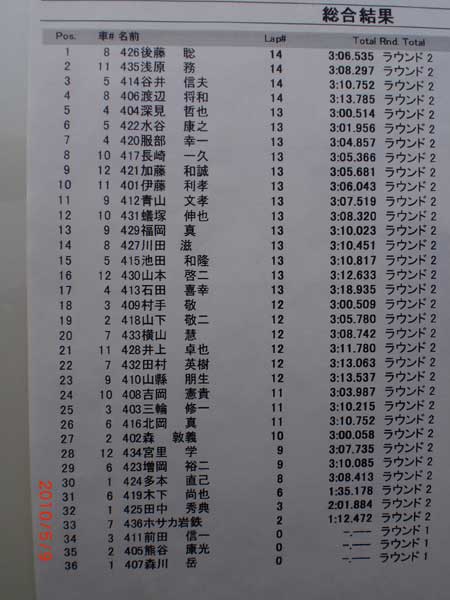 総合結果
Pos. 車# 名前 Lap# Total Rnd. Total
1 8 426 後藤 聡 14 3:06.535 ラウンド 2
2 11 435 浅原 務 14 3:08.297 ラウンド 2
3 5 414 谷井 信夫 14 3:10.752 ラウンド 2
4 8 406 渡辺 将和 14 3:13.785 ラウンド 2
5 4 404 深見 哲也 13 3:00.514 ラウンド 2
6 5 422 水谷 康之 13 3:01.956 ラウンド 2
7 4 420 服部 幸一 13 3:04.857 ラウンド 2
8 10 417 長崎 一久 13 3:05.366 ラウンド 2
9 12 421 加藤 和誠 13 3:05.681 ラウンド 2
10 11 401 伊藤 利孝 13 3:06.043 ラウンド 2
11 9 412 青山 文孝 13 3:07.519 ラウンド 2
12 10 431 蟻塚 伸也 13 3:08.320 ラウンド 2
13 9 429 福岡 真 13 3:10.023 ラウンド 2
14 8 427 川田 滋 13 3:10.451 ラウンド 2
15 5 415 池田 和隆 13 3:10.817 ラウンド 2
16 12 430 山本 啓二 13 3:12.633 ラウンド 2
17 4 413 石田 喜幸 13 3:18.935 ラウンド 2
18 3 409 村手 敬 12 3:00.509 ラウンド 2
19 2 418 山下 敬二 12 3:05.780 ラウンド 2
20 7 433 横山 慧 12 3:08.742 ラウンド 2
21 11 428 井上 卓也 12 3:11.780 ラウンド 2
22 7 432 田村 英樹 12 3:13.063 ラウンド 2
23 9 410 山縣 朋生 12 3:13.537 ラウンド 2
24 10 408 吉岡 憲貴 11 3:03.987 ラウンド 2
25 3 403 三輪 修一 11 3:10.215 ラウンド 2
26 6 416 北岡 真 11 3:10.752 ラウンド 2
27 2 402 森 敦義 10 3:00.058 ラウンド 2
28 12 434 宮里 学 9 3:07.735 ラウンド 2
29 6 423 増岡 裕二 9 3:10.085 ラウンド 2
30 1 424 多本 直己 8 3:08.413 ラウンド 2
31 6 419 木下 尚也 6 1:35.178 ラウンド 2
32 1 425 田中 秀典 3 2:01.884 ラウンド 2
33 7 436 ホサカ岩鉄 2 1:12.472 ラウンド 2
34 3 411 前田 信一 0 -.--- ラウンド 1
35 2 405 熊谷 康光 0 -.--- ラウンド 1
36 1 407 森川 岳 0 -.--- ラウンド 1
2010/5/9